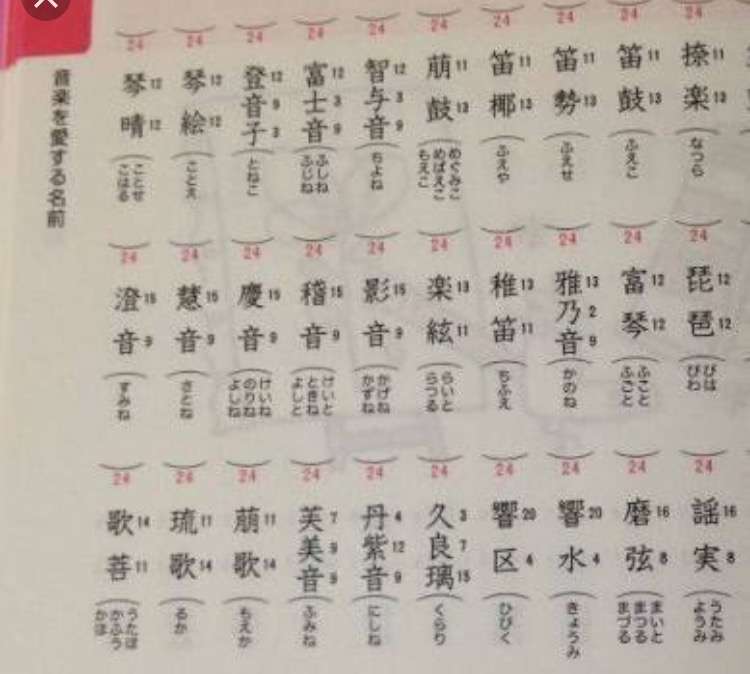 24
捺11楽13(なつら)
24
笛11鼓13(ふえこ)
24
笛11勢13(ふえせ)
24
笛11椰13(ふえや)
24
萌11鼓13(めぐみこ めばえこ もえこ)
24
智12与3音9(ちよね)
24
富12士3音9(ふしね ふじね)
24
登12音9子3(とねこ)
24
琴12絵12(ことえ)
24
琴12晴12(ことせ こはる)
24
琵12琶12(びは びわ)
24
富12琴12(ふこと ふごと)
24
雅13乃2音9(かのね)
24
稚13笛11(ちふえ)
24
楽13絃11(らいと らつる)
24
影15音9(かげね かずね)
24
稽15音9(けいと ときね よしと)
24
慶15音9(けいね のりね よしね)
24
慧15音9(さとね)
24
澄15音9(すみね)
24
謡16実8(うたみ ようみ)
24
磨16弦8(まいと まつる まづる)
24
響20水4(きょうみ)
24
響20区4(ひびく)
24
久3良7璃15(くらり)
24
丹4紫12音9(にしね)
24
芙7美9音9(ふみね)
24
萌11歌14(もえか)
24
琉11歌14(るか)
24
歌14菩11(うたほ かふう かほ)
音楽を愛する名前